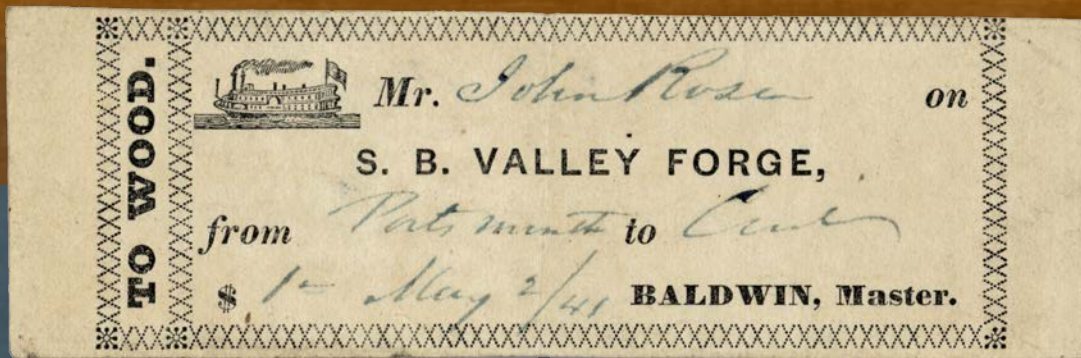 TO WOOD.
Mr. John Rosen on
S. B. VALLEY FORGE,
from Portsmouth to
$ 1- May 2/41 BALDWIN, Master.